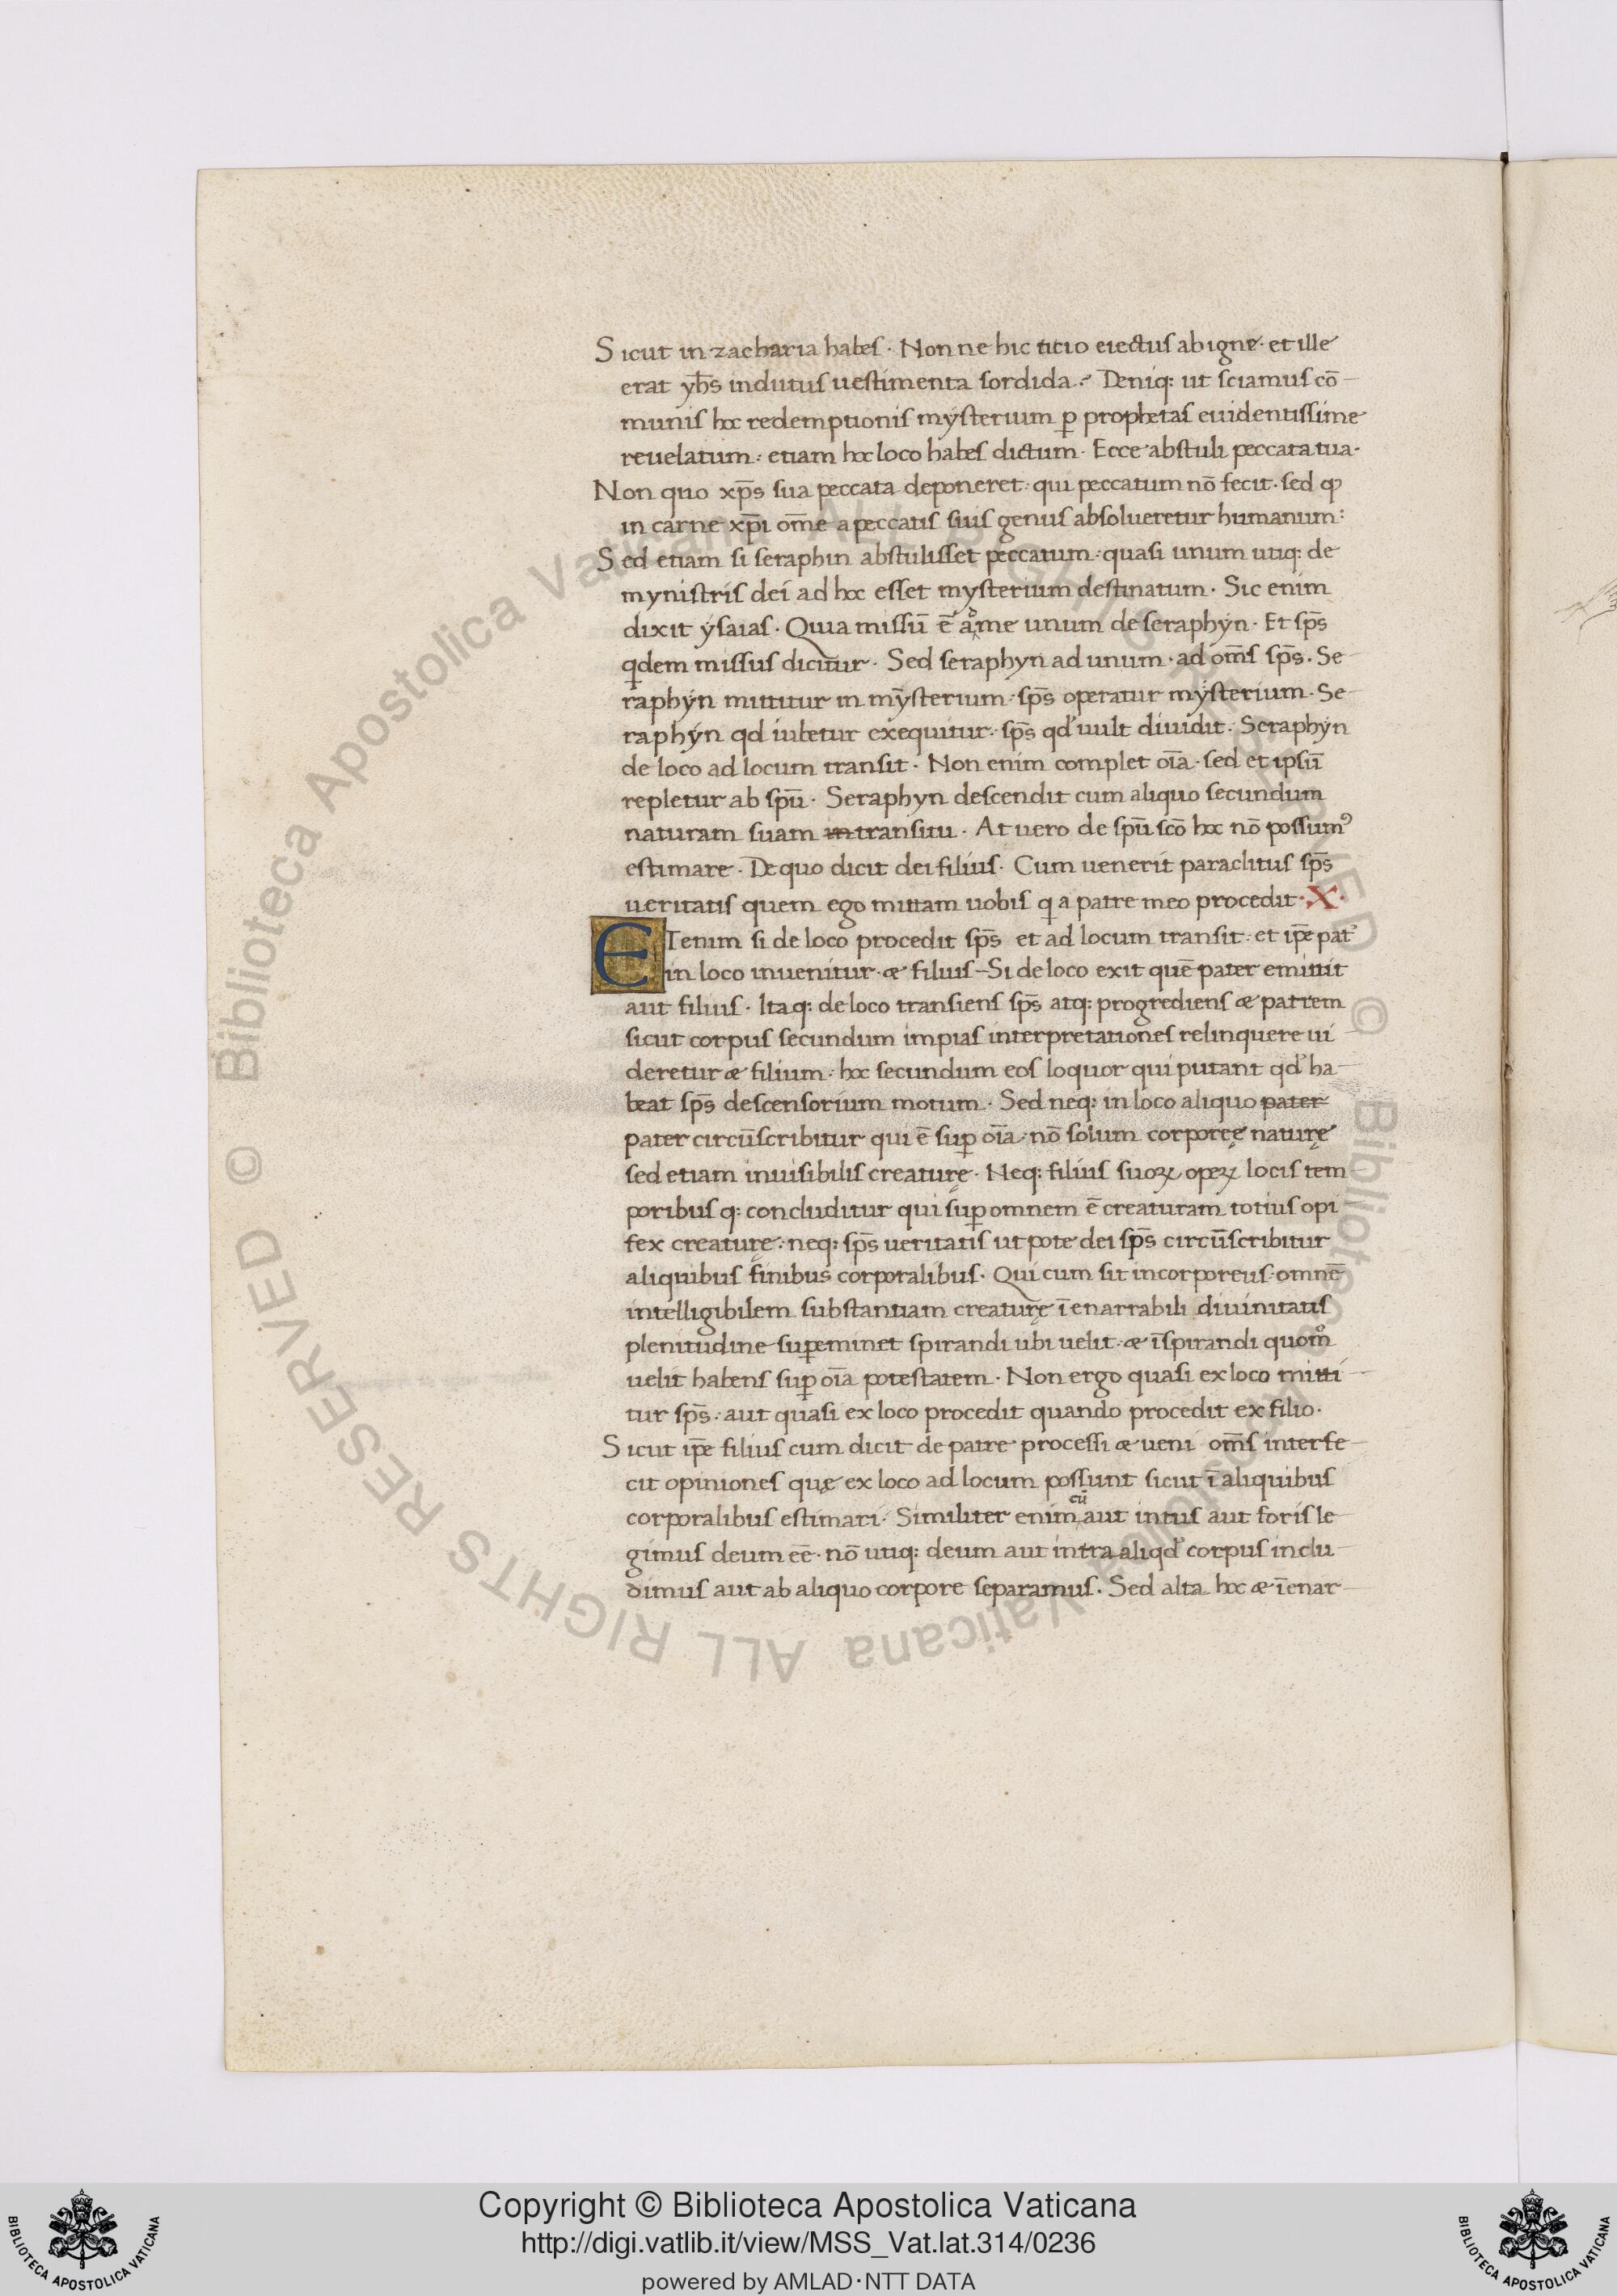 Sicut in zacharia habes · Non ne hic titio eiectus ab igne · et ille
erat yh̄s indutus uestimenta sordida ·⁊ Deniq: ut sciamus cō-
munis hoc redemptionis mysterium ꝑ prophetas euidentissime
reuelatum : etiam hoc loco habes dictum · Ecce abstuli peccata tua ·
Non quo xp̄s sua peccata deponeret : qui peccatum nō fecit · sed ꝙ
in carne xp̄i om̄e a peccatis suis genus absolueretur humanum :
Sed etiam si seraphin abstulisset peccatum : quasi unum utiq: de
mynistris dei ad hoc esset mysterium destinatum · Sic enim
dixit ysaias · Quia missū ē aͦme unum de seraphyn · Et sp̄s
q̣dem missus dicitur · Sed seraphyn ad unum · ad om̄s sp̄s · Se-
raphyn mittitur in mȳsterium : sp̄s operatur mysterium · Se-
raphyn qd iubetur exequitur : sp̄s qd' uult diuidit · Seraphyn
de loco ad locum transit · Non enim complet oīa · sed et ipsū
repletur ab sp̄u · Seraphyn descendit cum aliquo secundum
naturam suam in transitu · At uero de sp̄u scō hoc nō possumꝰ
estimare · De quo dicit dei filius · Cum uenerit paraclitus sp̄s
ueritatis quem ego mittam uobis q̣ a patre meo procedit · X ·
ETenim si de loco procedit sp̄s et ad locum transit : et ip̄e pat̉
in loco inuenitur · æ filius - Si de loco exit quē pater emittit
aut filius · Itaq: de loco transiens sp̄s atq: progrediens æ patrem
sicut corpus secundum impias interpretationes relinquere ui-
deretur æ filium : hoc secundum eos loquor qui putant qd' ha-
beat sp̄s descensorium motum · Sed neq: in loco aliquo pater
pater circūscribitur qui ē suꝑ oīa : nō solum corporeę naturę
sed etiam inuisibilis creaturę · Neq: filius suoꝝ opeꝝ locis tem
poribus q: concluditur qui suꝑ omnem ē creaturam totius opi-
fex creaturę : neq: sp̄s ueritatis ut pote dei sp̄s circūscribitur
aliquibus finibus corporalibus · Qui cum sit incorporeus : omnē
intelligibilem substantiam creaturę īenarrabili diuinitatis
plenitudine suꝑeminet spirandi ubi uelit : æ īspirandi quom̊
uelit habens suꝑ oīa potestatem · Non ergo quasi ex loco mitti-
tur sp̄s : aut quasi ex loco procedit quando procedit ex filio ·
Sicut ip̄e filius cum dicit de patre processi æ ueni om̄s interfe-
cit opiniones quę ex loco ad locum possunt sicut ī aliquibus
corporalibus estimari · Similiter enim cū aut intus aut foris le-
gimus deum eē · nō utiq: deum aut intra aliqd' corpus inclu-
dimus aut ab aliquo corpore separamus · Sed alta hoc æ īenar-
© Biblioteca Apostolica Vaticana ALL RIGHTS RESERVED © Biblioteca Apostolica Vaticana ALL RIGHTS RESERVED
Copyright © Biblioteca Apostolica Vaticana
http://digi.vatlib.it/view/MSS_Vat.lat.314/0236
powered by AMLAD·NTT DATA
BIBLIOTECA APOSTOLICA VATICANA
BIBLIOTECA APOSTOLICA VATICANA